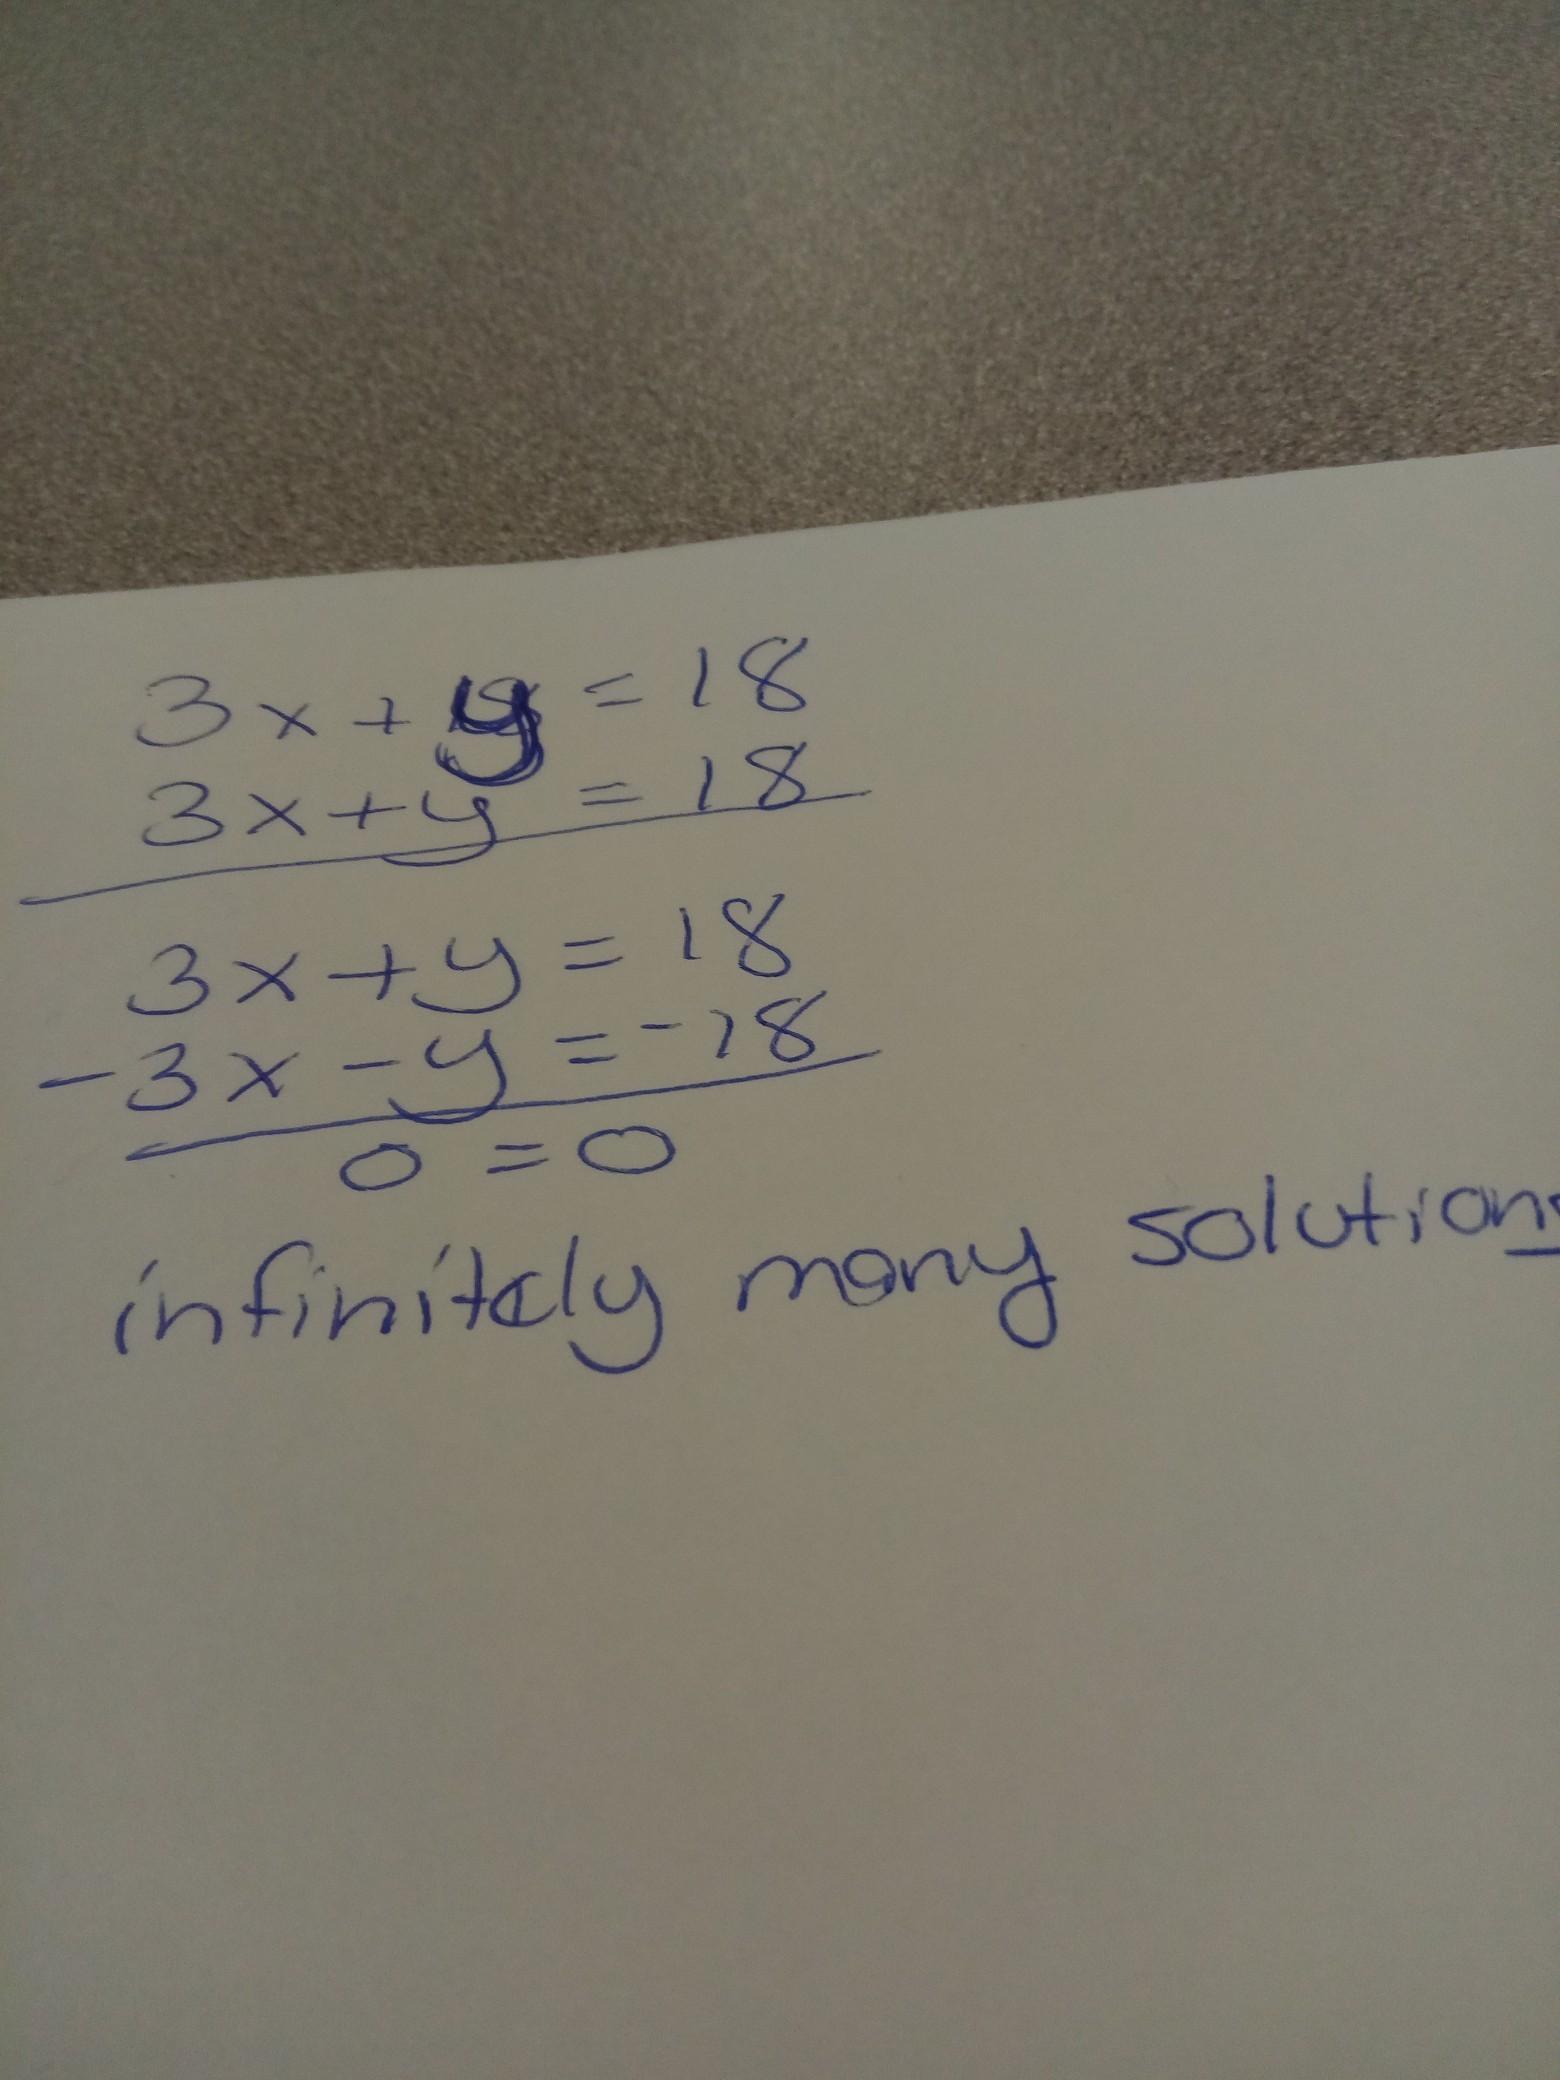 3x + y = 18
3x + y = 18
3x + y = 18
-3x - y = -18
0 = 0
infinitely many solutions